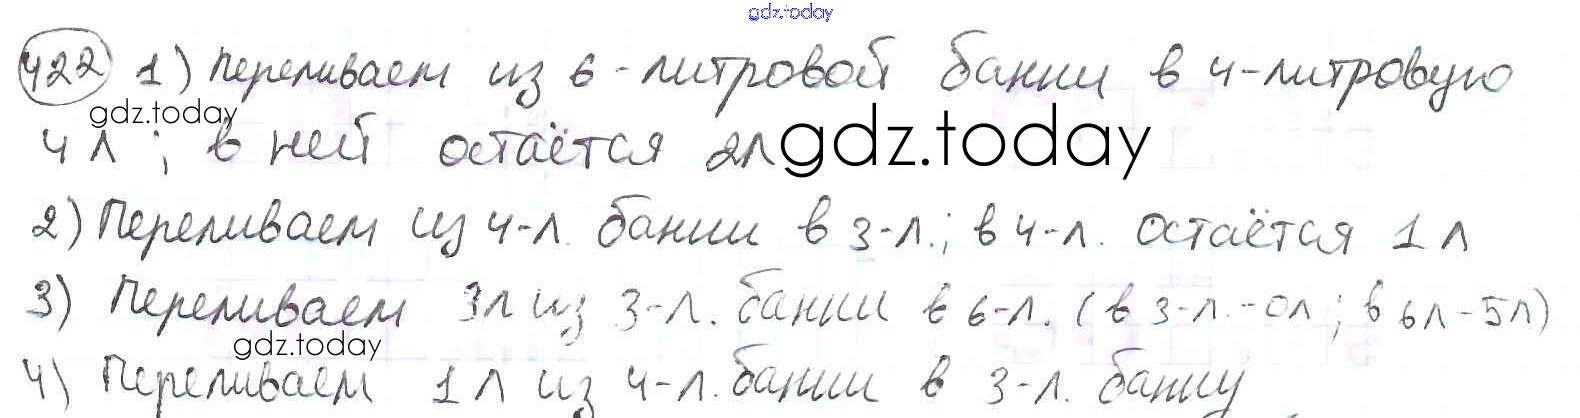 gdz.today
422 1) Переливаем из 6-литровой банки в 4-литровую
gdz.today
4 л; в ней остаётся 2л
gdz.today
2) Переливаем из 4-л. банки в 3-л.; в 4-л. остаётся 1 л
3) Переливаем 3л из 3-л. банки в 6-л. (в 3-л.-0л; в 6л-5л)
gdz.today
4) Переливаем 1л из 4-л. банки в 3-л. банку